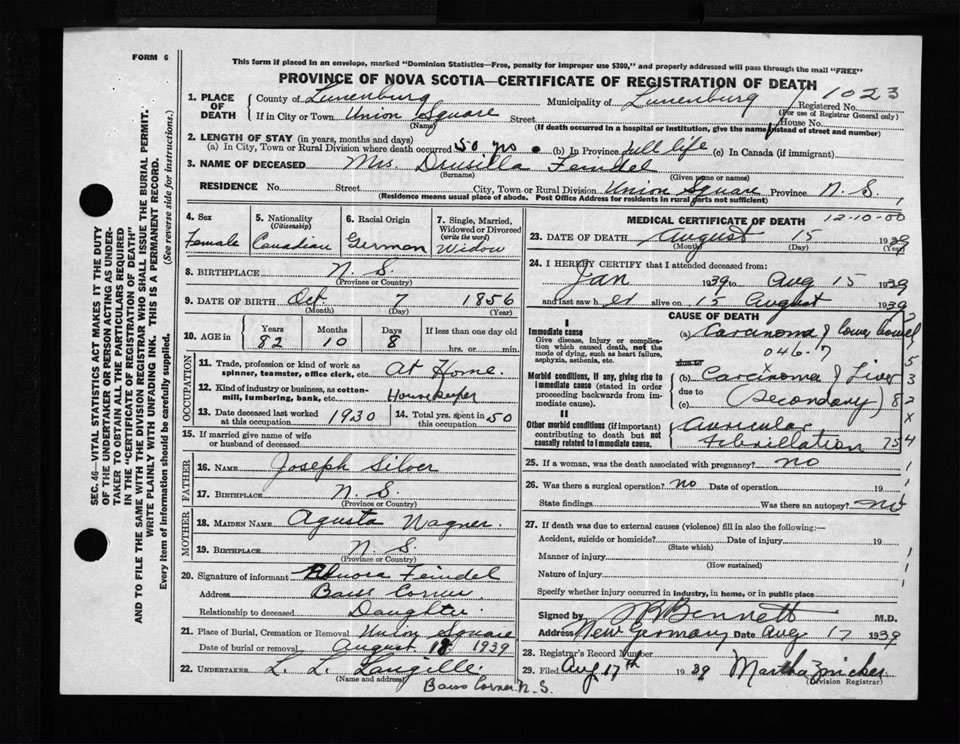 FORM 6
This form if placed in an envelope, marked "Dominion Statistics—Free, penalty for improper use $300," and properly addressed will pass through the mail "FREE"
PROVINCE OF NOVA SCOTIA—CERTIFICATE OF REGISTRATION OF DEATH
1023
1. PLACE OF DEATH
County of Lunenburg Municipality of Lunenburg Registered No.
(For use of Registrar General only)
If in City or Town Union Square Street House No.
(Name) (If death occurred in a hospital or institution, give the name instead of street and number)
2. LENGTH OF STAY (in years, months and days)
(a) In City, Town or Rural Division where death occurred 50 yrs. (b) In Province full life (c) In Canada (if immigrant)
3. NAME OF DECEASED Mrs. Drusilla Feindel
(Surname) (Given name or names)
RESIDENCE No. Street City, Town or Rural Division Union Square Province N. S.
(Residence means usual place of abode. Post Office Address for residents in rural parts not sufficient)
4. Sex
Female
5. Nationality
(Citizenship)
Canadian
6. Racial Origin
German
7. Single, Married, Widowed or Divorced
(write the word)
Widow
8. BIRTHPLACE N. S.
(Province or Country)
9. DATE OF BIRTH Oct. 7 1856
(Month) (Day) (Year)
10. AGE in Years Months Days If less than one day old
82 10 8 hrs. or min.
OCCUPATION
11. Trade, profession or kind of work as spinner, teamster, office clerk, etc. At Home.
12. Kind of industry or business, as cotton-mill, lumbering, bank, etc. Housekeeper
13. Date deceased last worked at this occupation 1930 14. Total yrs. spent in this occupation 50
15. If married give name of wife or husband of deceased
FATHER
16. NAME Joseph Silver
17. BIRTHPLACE N. S.
(Province or Country)
MOTHER
18. MAIDEN NAME Agusta Wagner.
19. BIRTHPLACE N. S.
(Province or Country)
20. Signature of informant Elnora Feindel
Address Bass Corner
Relationship to deceased Daughter.
21. Place of Burial, Cremation or Removal Union Square
Date of burial or removal August 18 1939
22. UNDERTAKER L. L. Langille.
(Name and address)
Bass Corner. N. S.
MEDICAL CERTIFICATE OF DEATH
12-10-00
23. DATE OF DEATH August 15 1939
(Month) (Day) (Year)
24. I HEREBY CERTIFY that I attended deceased from:
Jan 1939 to Aug 15 1939
and last saw her alive on 15 August 1939
CAUSE OF DEATH
I
Immediate cause
Give disease, injury or complication which caused death, not the mode of dying, such as heart failure, asphyxia, asthenia, etc.
(a) Carcinoma of lower bowel
046.7
due to
Morbid conditions, if any, giving rise to immediate cause (stated in order proceeding backwards from immediate cause).
(b) Carcinoma of Liver
due to (Secondary)
(c)
II
Other morbid conditions (if important) contributing to death but not causally related to immediate cause.
Auricular
Fibrillation
25. If a woman, was the death associated with pregnancy? no
26. Was there a surgical operation? no Date of operation 19
State findings Was there an autopsy? no
27. If death was due to external causes (violence) fill in also the following:—
Accident, suicide or homicide? Date of injury 19
(State which)
Manner of injury
(How sustained)
Nature of injury
Specify whether injury occurred in industry, in home, or in public place
Signed by Bennett M.D.
Address New Germany Date Aug 17 1939
28. Registrar's Record Number
29. Filed Aug 17th 1939 Martha Zwicker
(Division Registrar)
SEC. 46—VITAL STATISTICS ACT MAKES IT THE DUTY
OF THE UNDERTAKER OR PERSON ACTING AS UNDER-
TAKER TO OBTAIN ALL THE PARTICULARS REQUIRED
IN THE "CERTIFICATE OF REGISTRATION OF DEATH"
AND TO FILE THE SAME WITH THE DIVISION REGISTRAR WHO SHALL ISSUE THE BURIAL PERMIT.
WRITE PLAINLY WITH UNFADING INK. THIS IS A PERMANENT RECORD.
Every item of information should be carefully supplied. (See reverse side for instructions.)